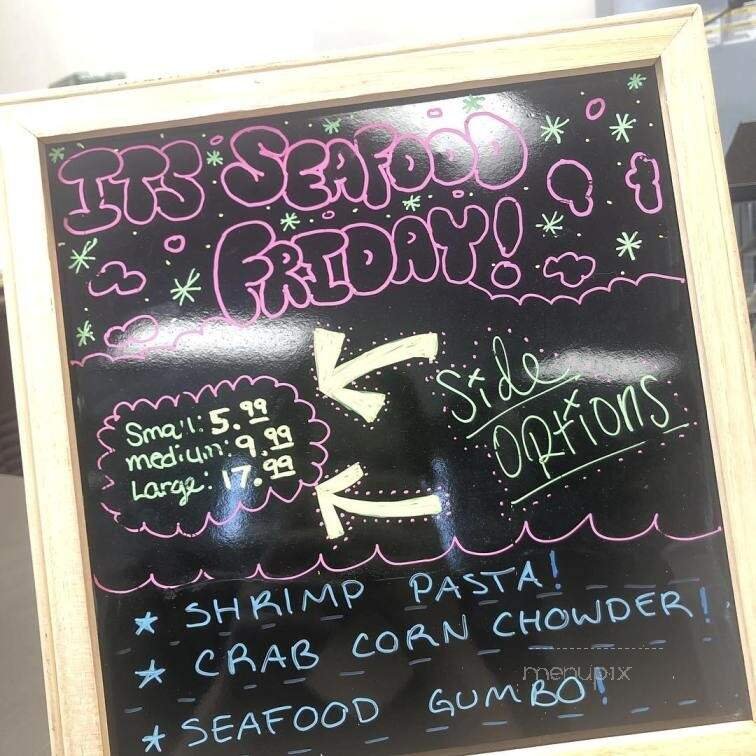 ITS SEAFOOD
FRIDAY!
Side
OPtions
Small: 5.99
medium: 9.99
Large: 17.99
* SHRIMP PASTA!
* CRAB CORN CHOWDER!
* SEAFOOD GUMBO!
menupix